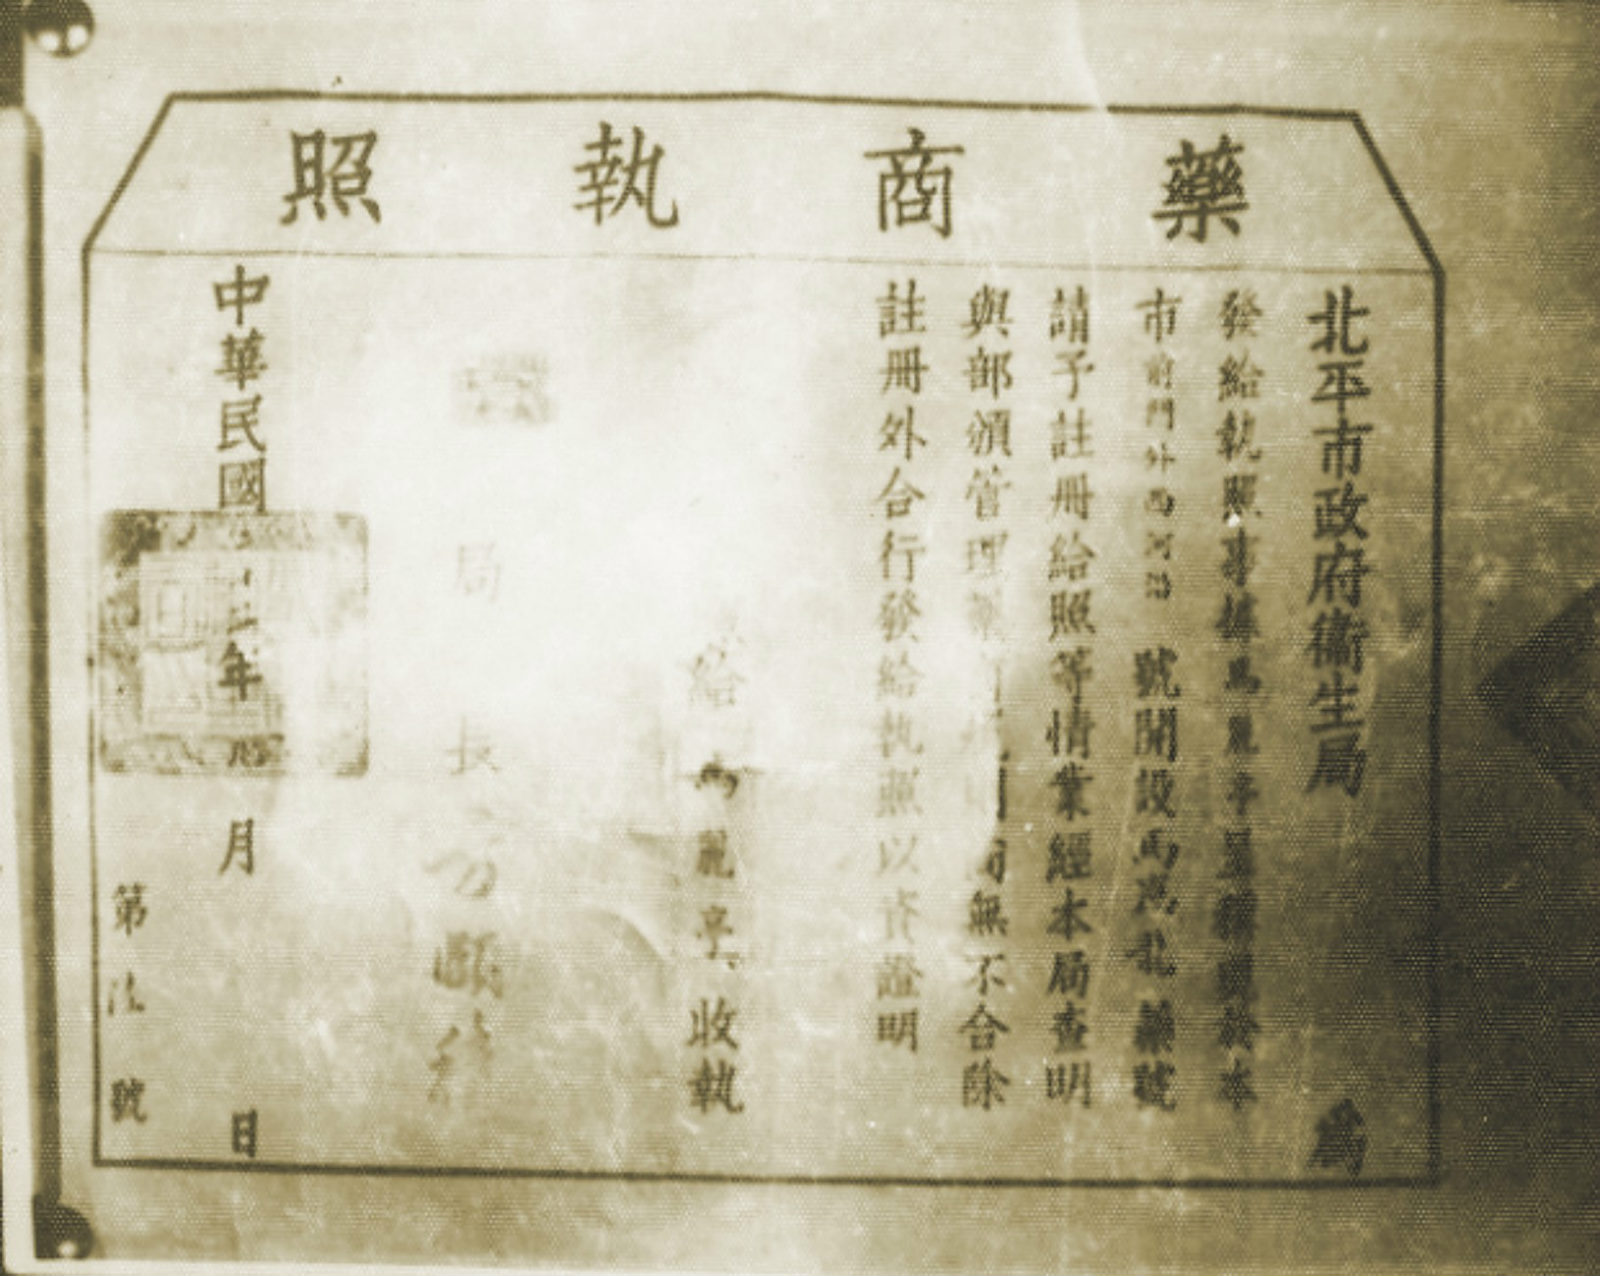 藥商執照
北平市政府衞生局 爲
發給執照事據馬麗亭呈稱現於本
市前門外西河沿 號開設馬應北藥號
請予註册給照等情業經本局查明
與部頒管理 無不合除
註册外合行發給執照以資證明
給馬麗亭收執
局長方頤積
中華民國 年 月 日
第 號